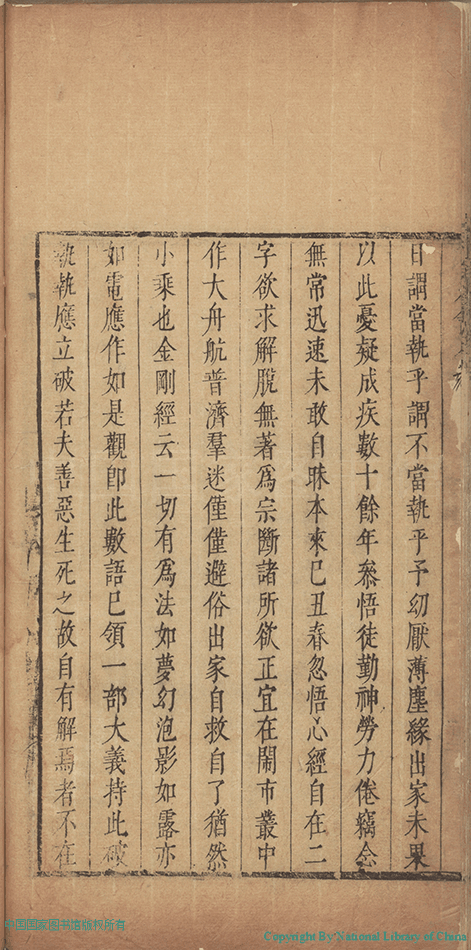 日謂當執乎謂不當執乎予幼厭薄塵緣出家未果
以此憂疑成疾數十餘年叅悟徒勤神勞力倦竊念
無常迅速未敢自昧本來己丑春忽悟心經自在二
字欲求解脫無著爲宗斷諸所欲正宜在鬧市叢中
作大舟航普濟羣迷僅僅避俗出家自救自了猶然
小乘也金剛經云一切有爲法如夢幻泡影如露亦
如電應作如是觀卽此數語已領一部大義持此破
執執應立破若夫善惡生死之故自有解焉者不在
中国国家图书馆版权所有
Copyright By National Library of China